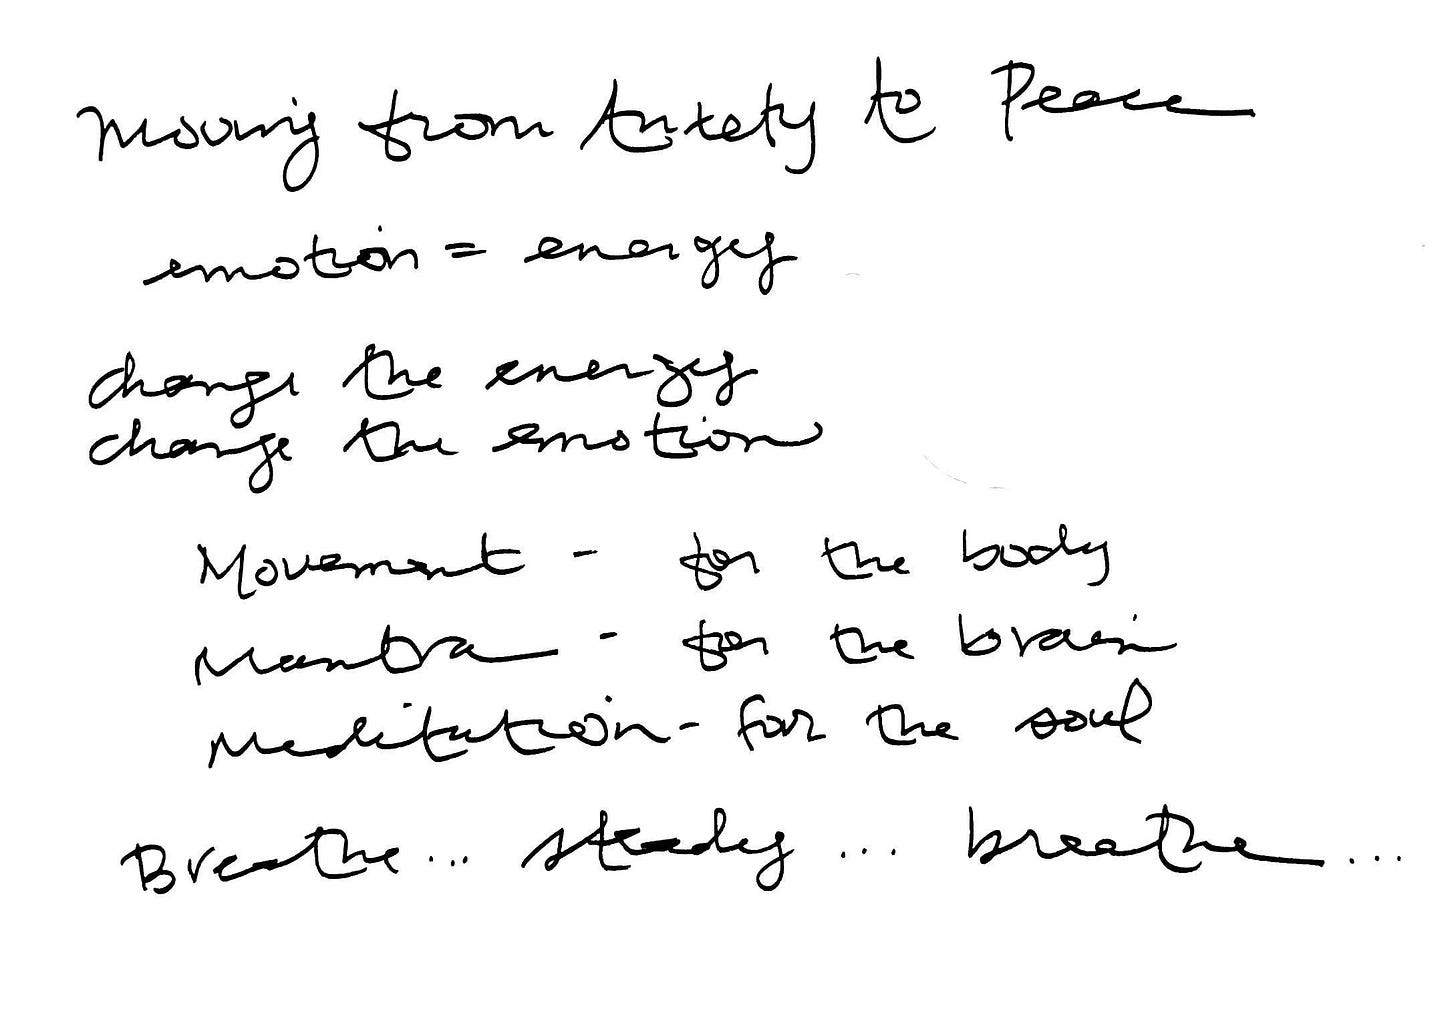 Moving from Anxiety to Peace
emotion = energy
change the energy
change the emotion
Movement - for the body
Mantra - for the brain
Meditation - for the soul
Breathe... steady... breathe...